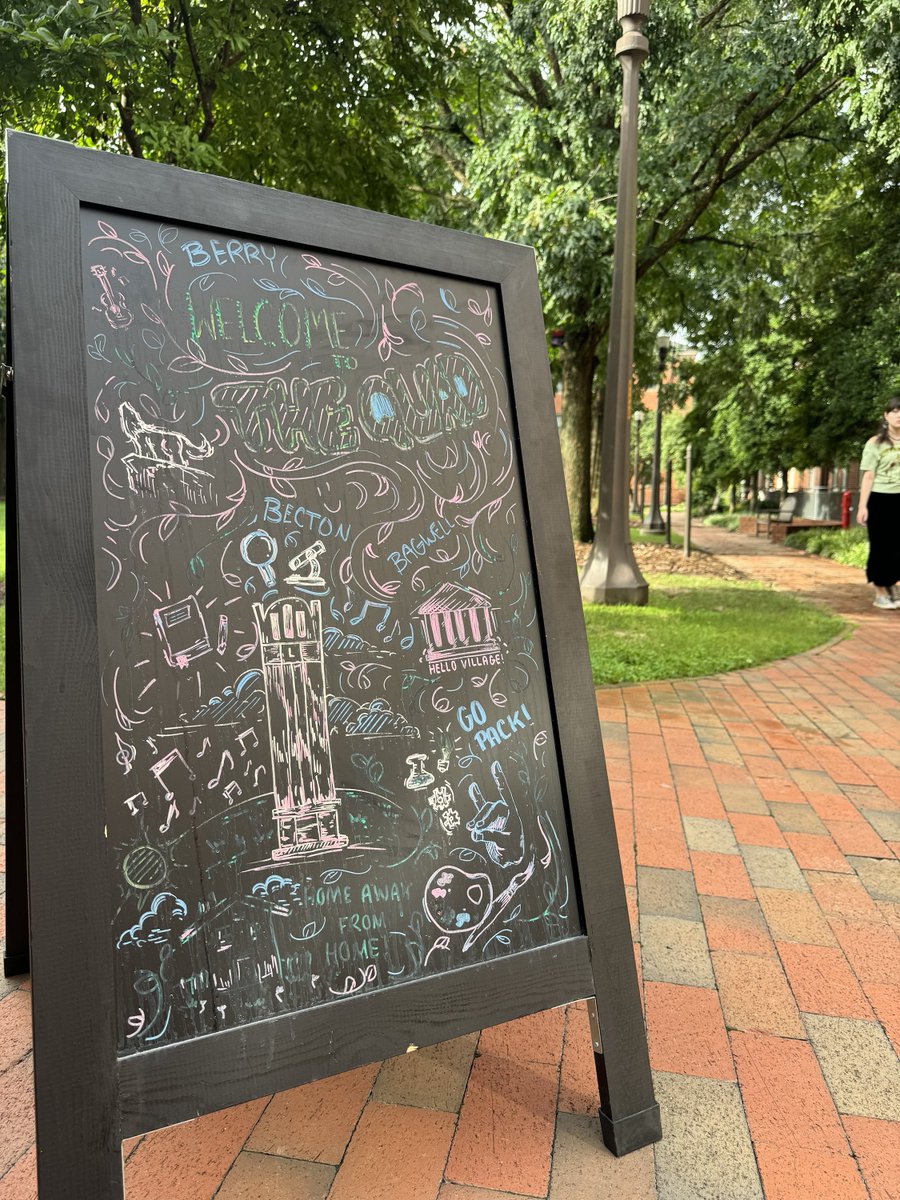 BERRY
WELCOME
TO
THE QUAD
BECTON
BAGWELL
HELLO VILLAGE!
GO
PACK!
HOME AWAY
FROM
HOME